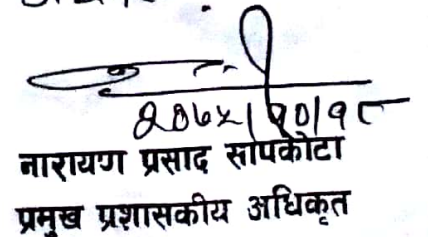 २०७५।१०।१८
नारायण प्रसाद सापकोटा
प्रमुख प्रशासकीय अधिकृत